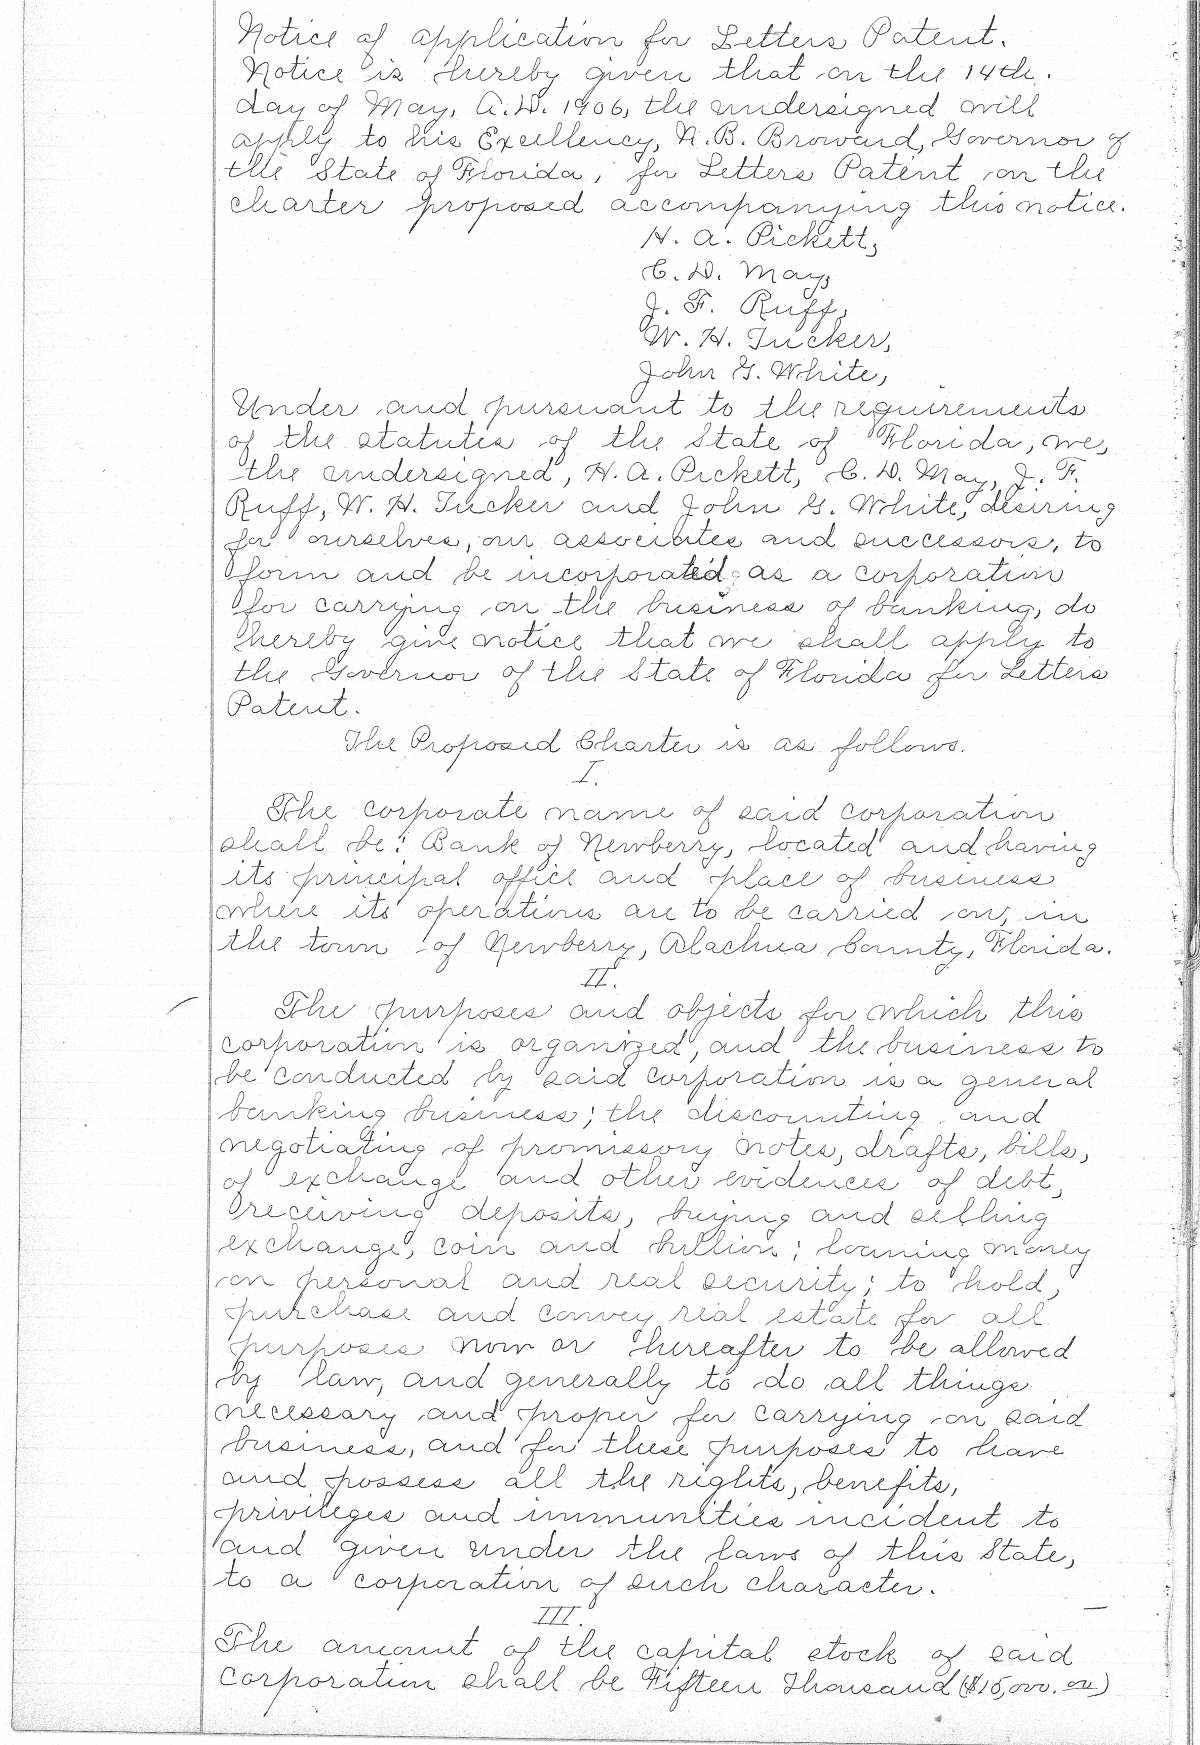 Notice of application for Letters Patent.
Notice is hereby given that on the 14th.
day of May, A.D. 1906, the undersigned will
apply to his Excellency, N. B. Broward, Governor of
the State of Florida, for Letters Patent on the
charter proposed accompanying this notice.
H. A. Pickett,
C. D. May,
J. F. Ruff,
W. H. Tucker,
John G. White,
Under and pursuant to the requirements
of the statutes of the State of Florida, we,
the undersigned, H. A. Pickett, C. D. May, J. F.
Ruff, W. H. Tucker and John G. White, desiring
for ourselves, our associates and successors, to
form and be incorporated as a corporation
for carrying on the business of banking, do
hereby give notice that we shall apply to
the Governor of the State of Florida for Letters
Patent.
The Proposed Charter is as follows.
I.
The corporate name of said corporation
shall be: Bank of Newberry, located and having
its principal office and place of business
where its operations are to be carried on, in
the town of Newberry, Alachua County, Florida.
II.
The purposes and objects for which this
corporation is organized, and the business to
be conducted by said corporation is a general
banking business; the discounting and
negotiating of promissory notes, drafts, bills,
of exchange and other evidences of debt,
receiving deposits, buying and selling
exchange, coin and bullion; loaning money
on personal and real security; to hold,
purchase and convey real estate for all
purposes now or hereafter to be allowed
by law, and generally to do all things
necessary and proper for carrying on said
business, and for these purposes to have
and possess all the rights, benefits,
privileges and immunities incident to
and given under the laws of this State,
to a corporation of such character.
III.
The amount of the capital stock of said
corporation shall be Fifteen Thousand ($15,000.00)